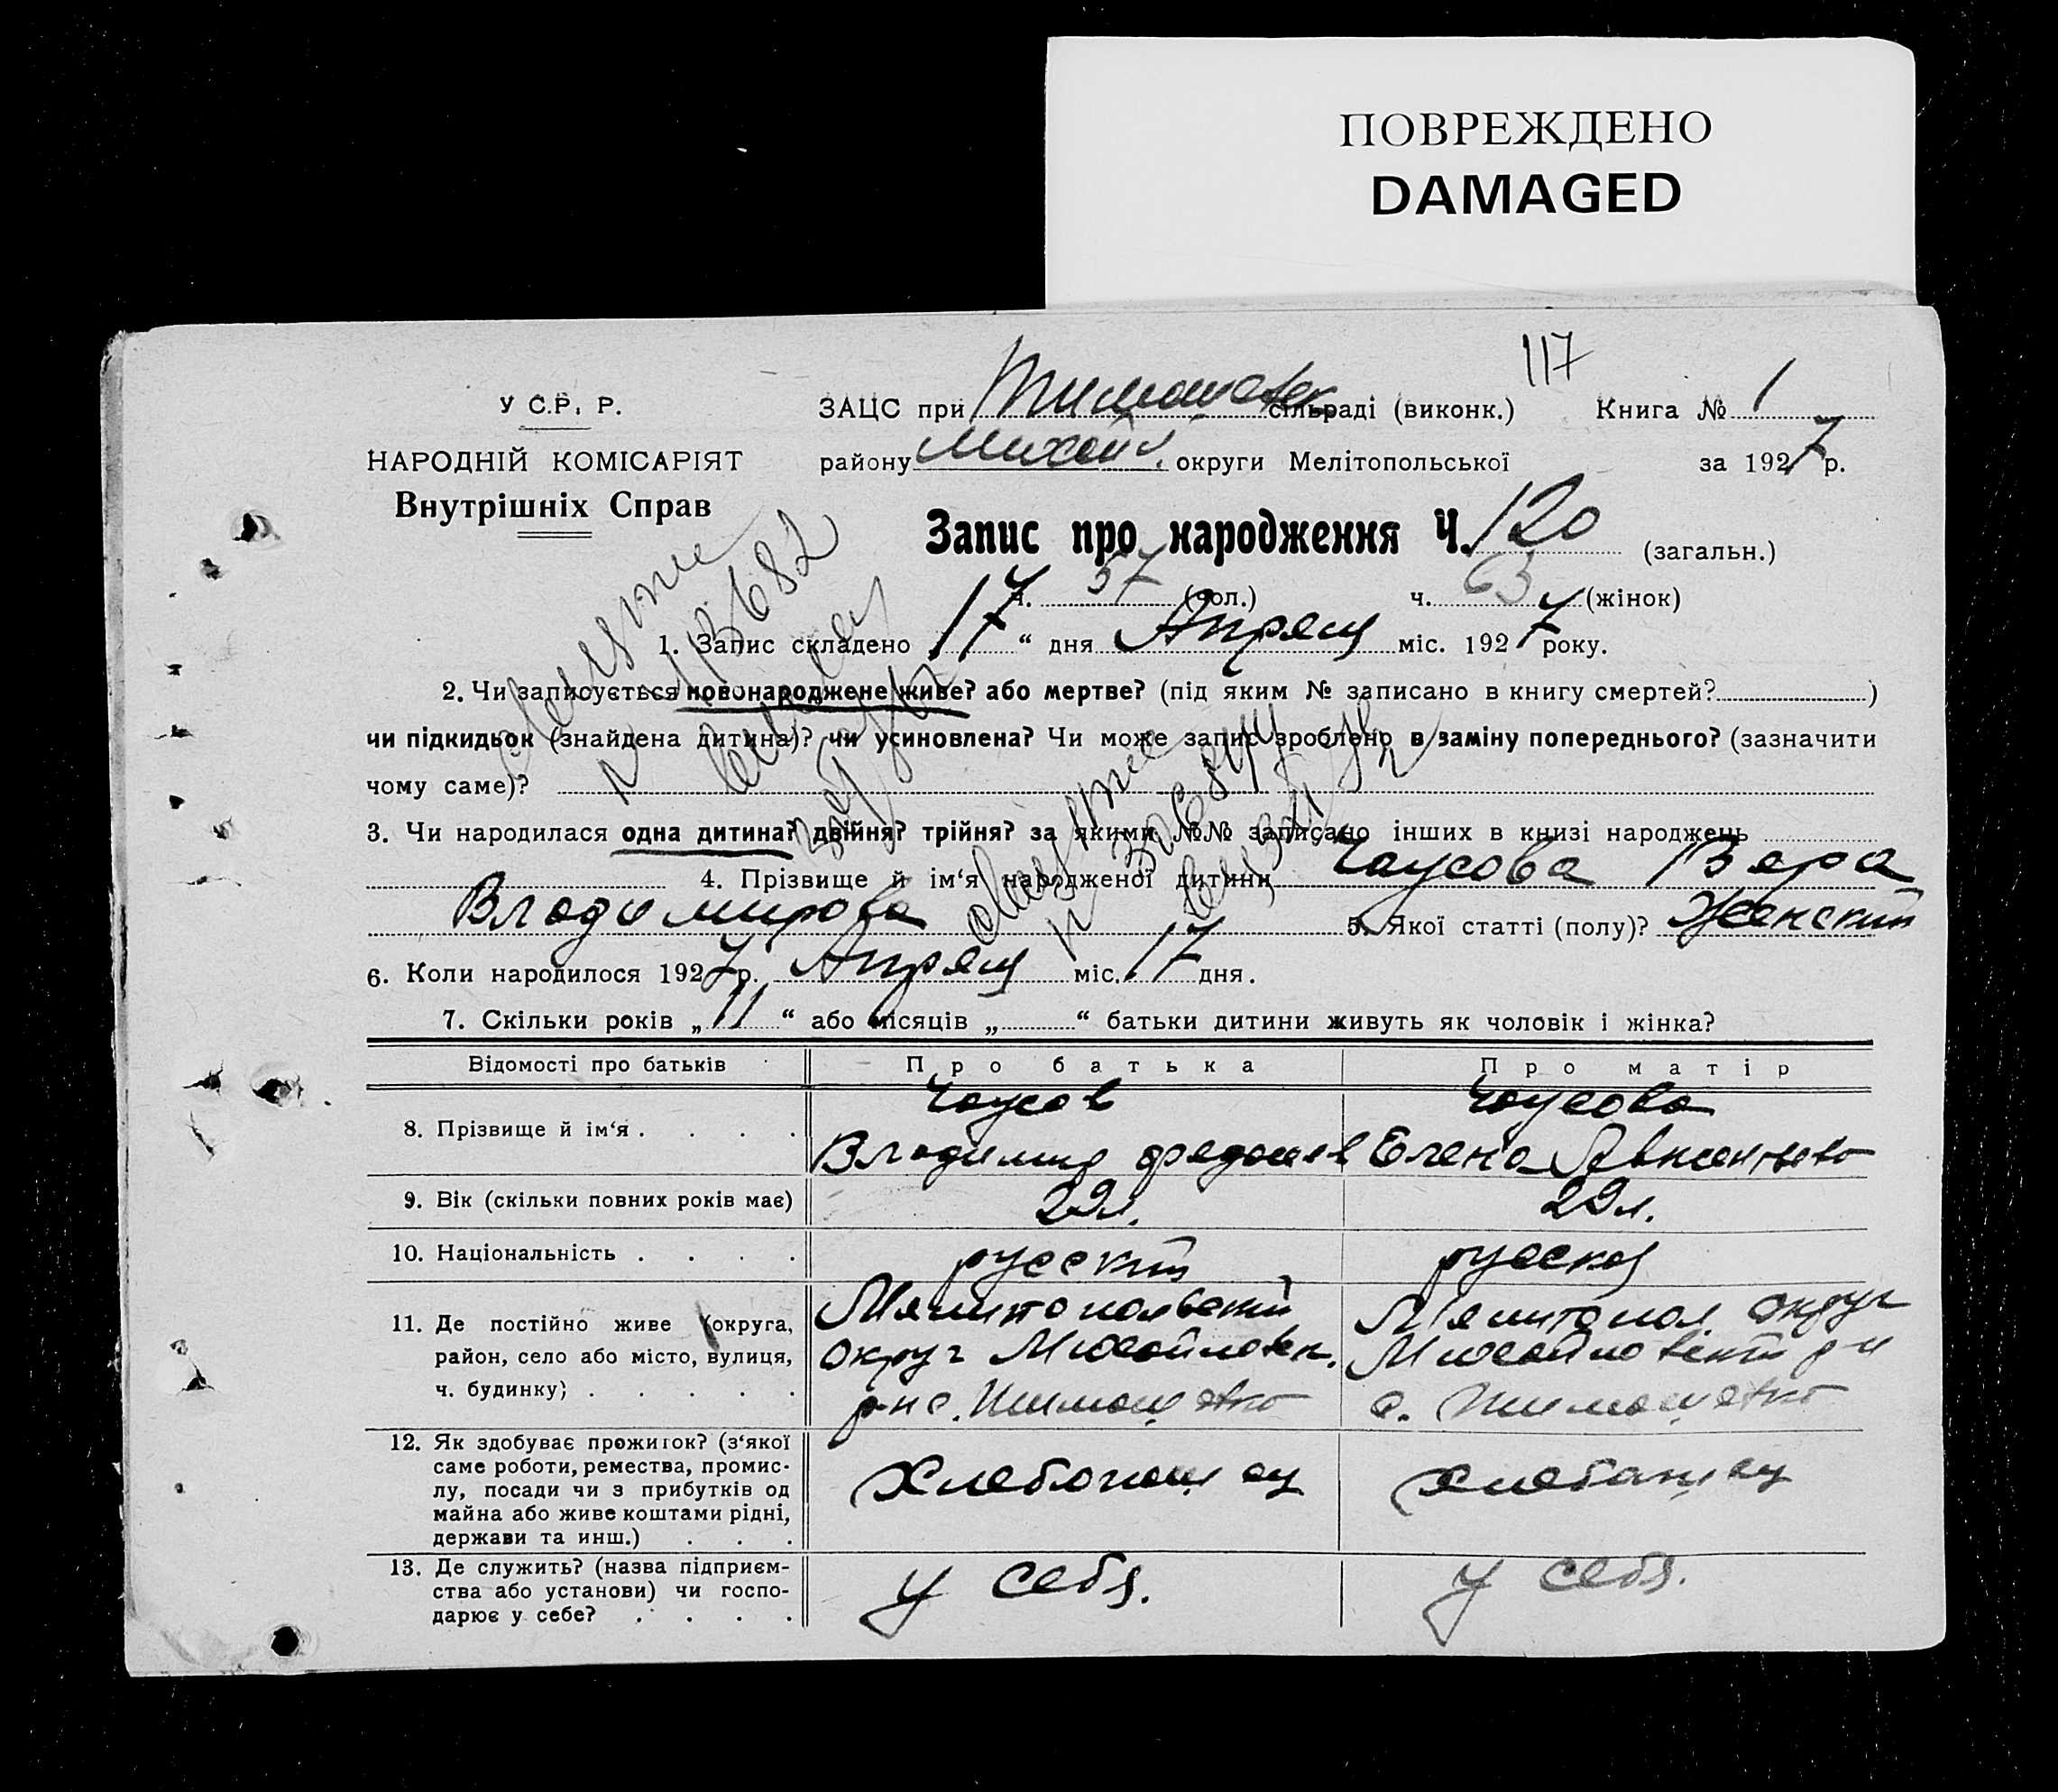 ПОВРЕЖДЕНО
DAMAGED
117
У С.Р. Р.
НАРОДНІЙ КОМІСАРІЯТ
Внутрішніх Справ
ЗАЦС при Тимошевск сільраді (виконк.) Книга № 1
району Михайл. округи Мелітопольської за 1927 р.
Запис про народження Ч. 120 (загальн.)
ч. 57 (чол.) ч. 63 (жінок)
1. Запис складено 17 “ дня Апреля міс. 1927 року.
2. Чи записується новонароджене живе? або мертве? (під яким № записано в книгу смертей? )
чи підкидьок (знайдена дитина)? чи усиновлена? Чи може запис зроблено в заміну попереднього? (зазначити
чому саме)?
3. Чи народилася одна дитина? двійня? трійня? за якими №№ записано інших в книзі народжень
4. Прізвище й ім‘я народженої дитини Чаусова Вера
Владимирова 5. Якої статті (полу)? Женский
6. Коли народилося 1927 р. Апреля міс. 17 дня.
7. Скільки років „ 11 “ або місяців „ “ батьки дитини живуть як чоловік і жінка?
Відомості про батьків Про батька Про матір
8. Прізвище й ім‘я . . . . Чаусов Чаусова
Владимир Елена
9. Вік (скільки повних років має) 29 л. 29 л.
10. Національність . . . . русский русская
11. Де постійно живе (округа, район, село або місто, вулиця, ч. будинку) . . . . .
Мелитопольский
округ Михайловск.
р-н с. Тимошевка
Мелитопол округ
Михайловский р-н
с. Тимошевка
12. Як здобуває прожиток? (з‘якої саме роботи, ремества, промислу, посади чи з прибутків од майна або живе коштами рідні, держави та инш.) . . . Хлебопашец хлебопашец
13. Де служить? (назва підприємства або установи) чи господарює у себе? . . . . у себя. у себя.
№ 113682